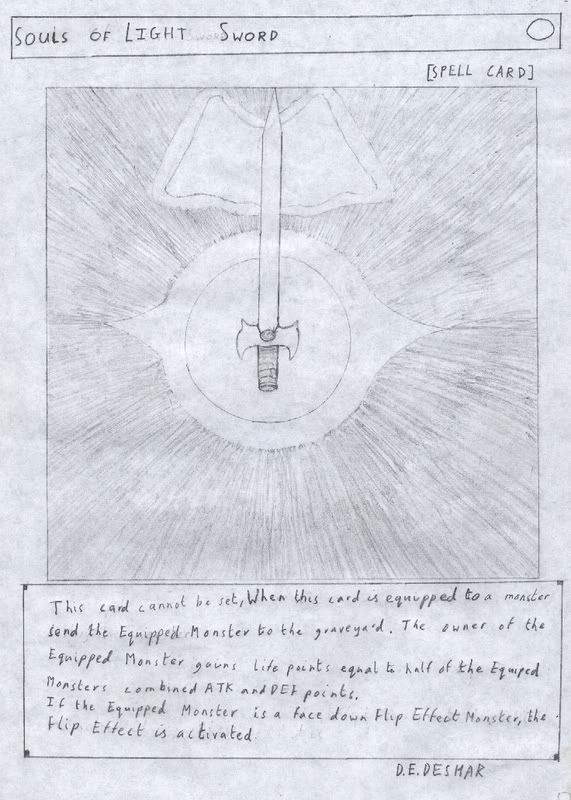 SOULS OF LIGHT SWORD
[SPELL CARD]
This card cannot be set, When this card is equipped to a monster
send the Equipped Monster to the graveyard. The owner of the
Equipped Monster gains life points equal to half of the Equiped
Monsters combined ATK and DEF points.
If the Equipped Monster is a face down Flip Effect Monster, the
Flip Effect is activated.
D.E.DESHAR